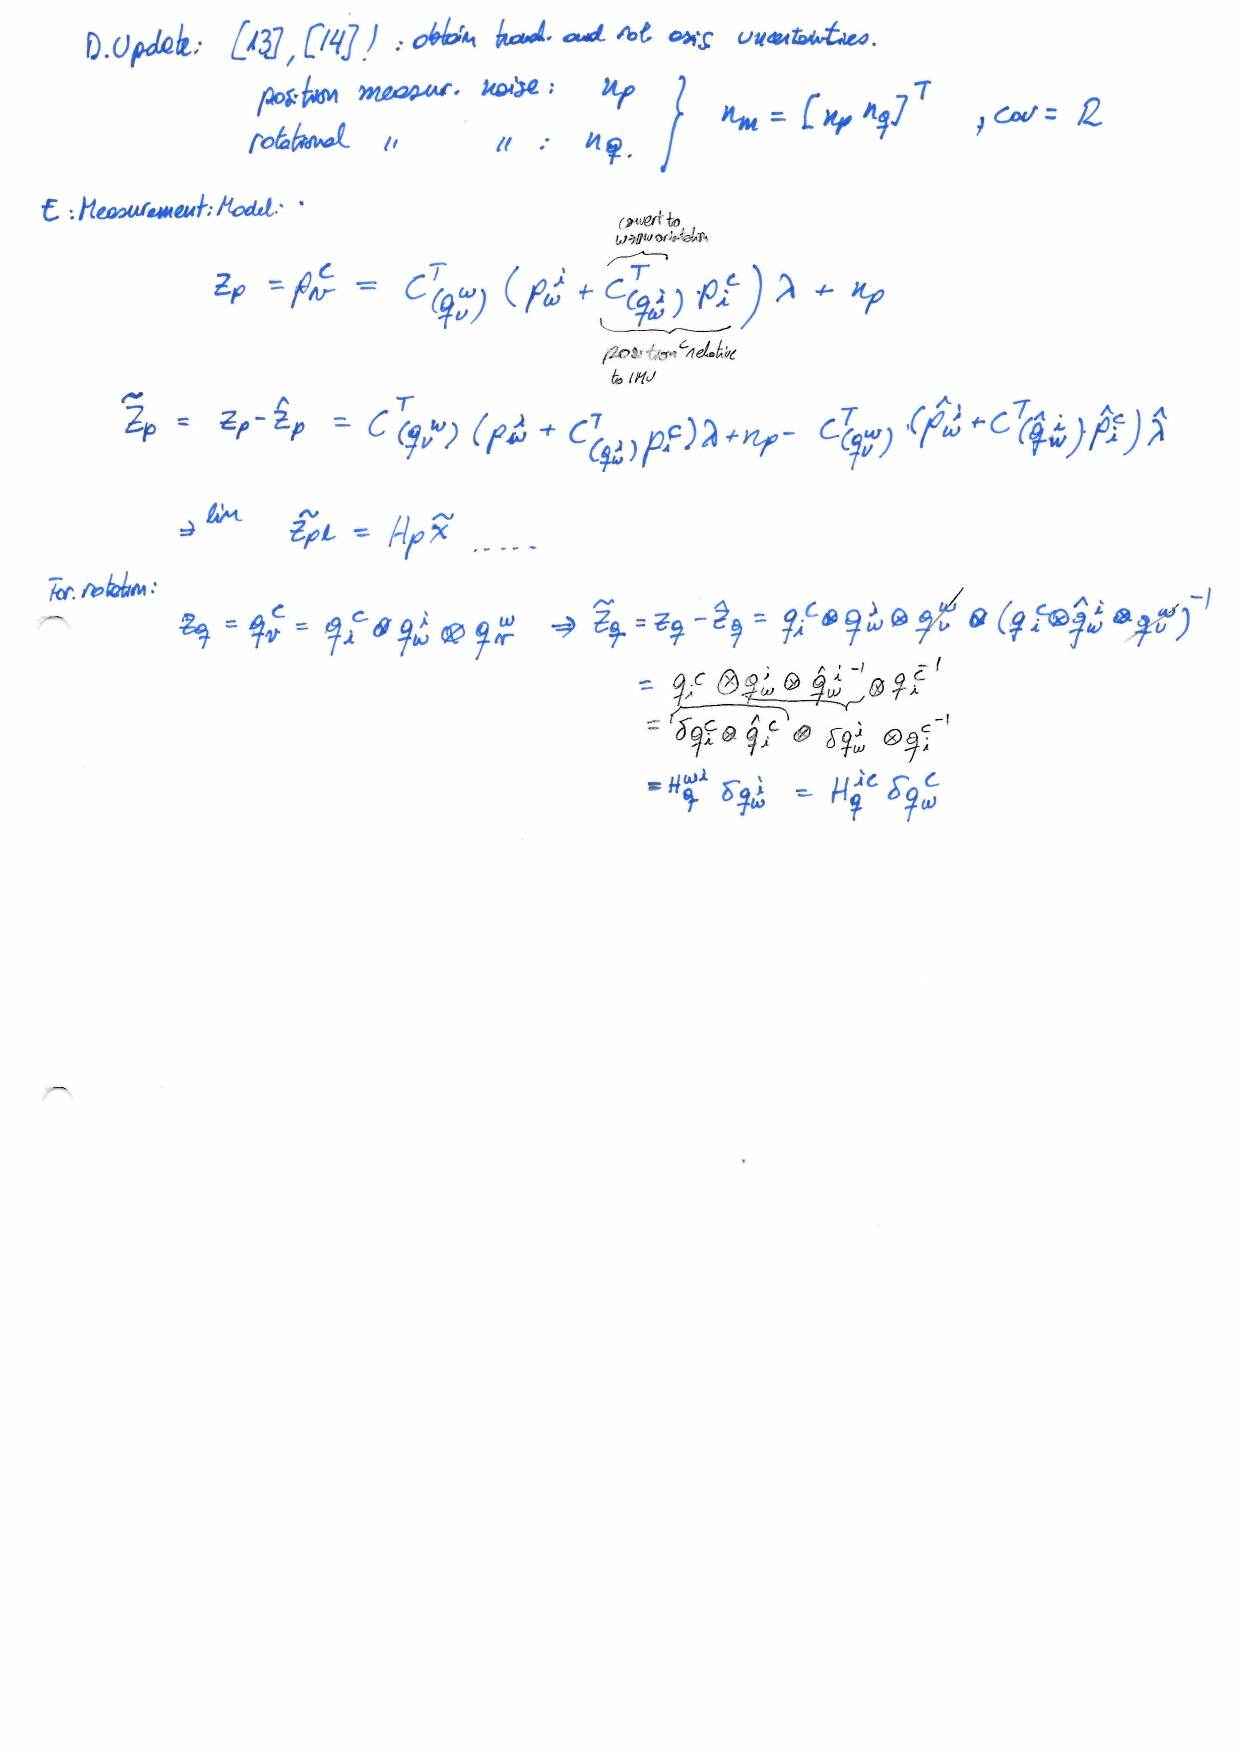 D. Update: [13], [14]) : obtain and rot axis uncertainties.
position measur. noise : n_p } n_m = [n_p n_q]^T , cov = R
rotational " " : n_q.
E : Measurement : Model :
convert to
z_p = p_v^c = C^T_(q_v^w) (p_w^i + C^T_(q_w^i) · p_i^c) λ + n_p
position relative
to IMU
z̃_p = z_p - ẑ_p = C^T_(q_v^w) (p_w^i + C^T_(q_w^i) p_i^c) λ + n_p - C^T_(q_v^w) · (p̂_w^i + C^T_(q̂_w^i) · p̂_i^c) λ̂
⇒ lin z̃_pL = H_p x̃ .....
For. rotation:
z_q = q_v^c = q_i^c ⊗ q_w^i ⊗ q_v^w ⇒ z̃_q = z_q - ẑ_q = q_i^c ⊗ q_w^i ⊗ q_v^w ⊗ (q_i^c ⊗ q̂_w^i ⊗ q_v^w)^-1
= q_i^c ⊗ q_w^i ⊗ q̂_w^i^-1 ⊗ q_i^c^-1
= δq_i^c ⊗ q̂_i^c ⊗ δq_w^i ⊗ q_i^c^-1
= H_q^wi δq_w^i = H_q^ic δq_w^c